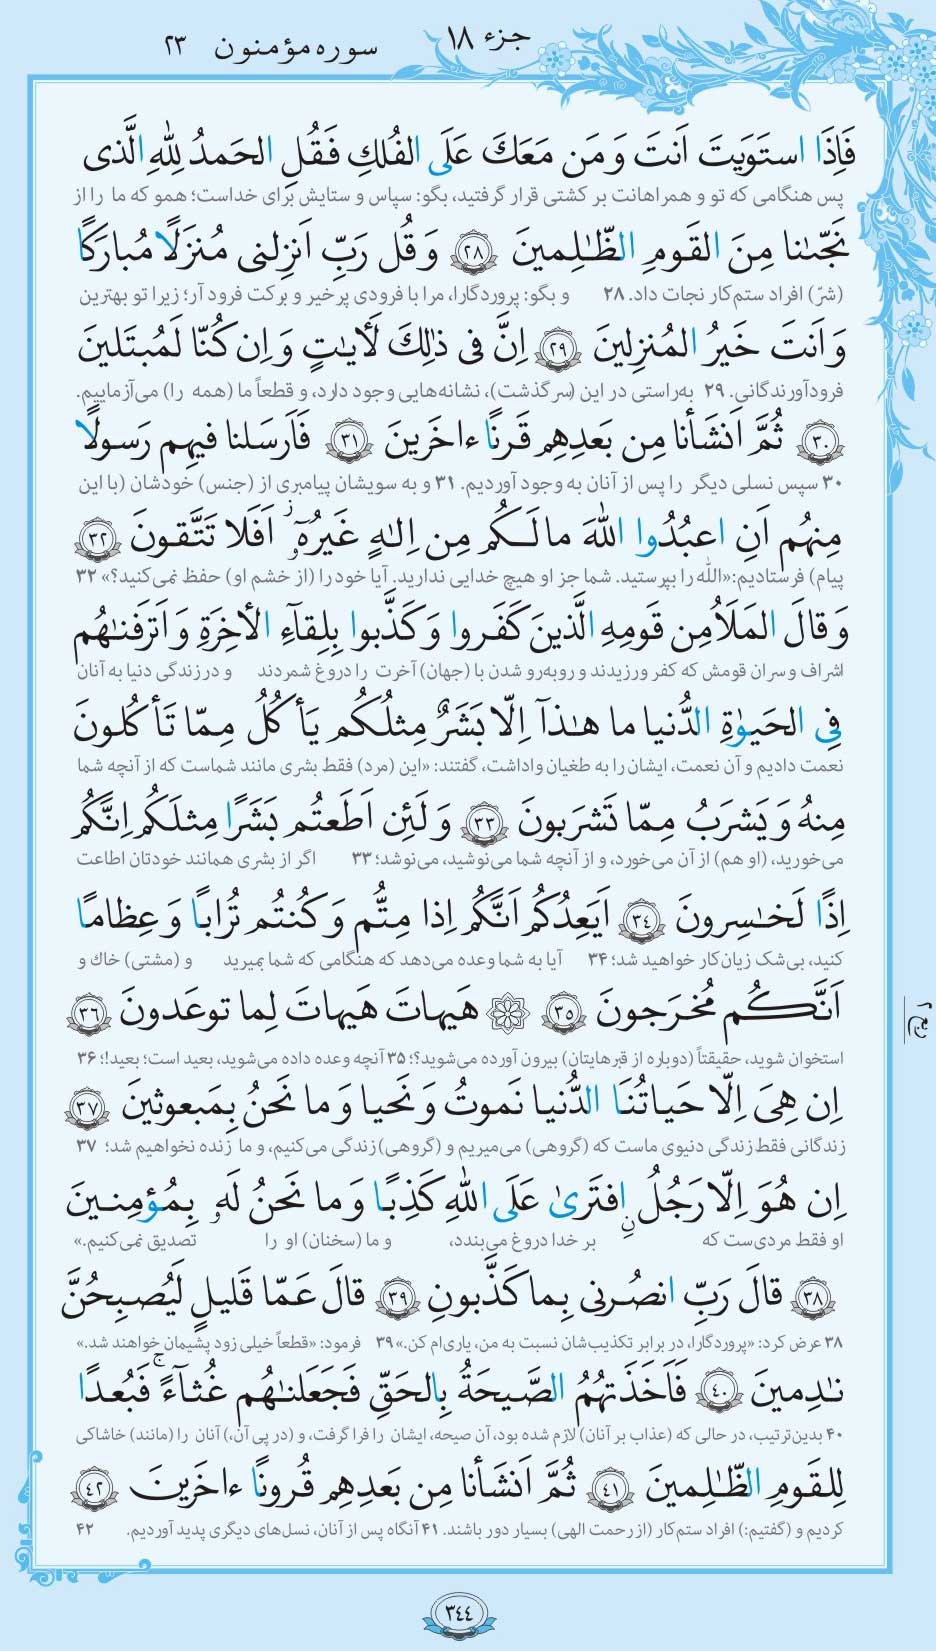 جزء ۱۸
سوره مؤمنون ۲۳
فَاِذَا استَوَيتَ اَنتَ وَ مَن مَعَكَ عَلَى الفُلكِ فَقُلِ الحَمدُ لِلّٰهِ الَّذى
پس هنگامی که تو و همراهانت بر کشتی قرار گرفتید، بگو: سپاس و ستایش برای خداست؛ همو که ما را از
نَجّىٰنا مِنَ القَومِ الظّٰـلِمينَ ﴿۲۸﴾ وَ قُل رَبِّ اَنزِلنى مُنزَلًا مُبارَكًا
(شرّ) افراد ستم‌کار نجات داد. ۲۸ و بگو: پروردگارا، مرا با فرودی پرخیر و برکت فرود آر؛ زیرا تو بهترین
وَ اَنتَ خَيرُ المُنزِلينَ ﴿۲۹﴾ اِنَّ فى ذٰلِكَ لَأٓيـٰتٍ وَ اِن كُنّا لَمُبتَلينَ
فرودآورندگانی. ۲۹ به‌راستی در این (سرگذشت)، نشانه‌هایی وجود دارد، و قطعاً ما (همه را) می‌آزماییم.
﴿۳۰﴾ ثُمَّ اَنشَأنا مِن بَعدِهِم قَرنًا ءاخَرينَ ﴿۳۱﴾ فَاَرسَلنا فيهِم رَسولًا
۳۰ سپس نسلی دیگر را پس از آنان به وجود آوردیم. ۳۱ و به سویشان پیامبری از (جنس) خودشان (با این
مِنهُم اَنِ اعبُدُوا اللّٰهَ ما لَـكُم مِن اِلـٰهٍ غَيرُهٗٓ ۖ اَفَلا تَتَّقونَ ﴿۳۲﴾
پیام) فرستادیم: «اللّه را بپرستید. شما جز او هیچ خدایی ندارید. آیا خود را (از خشم او) حفظ نمی‌کنید؟» ۳۲
وَ قالَ المَلَأُ مِن قَومِهِ الَّذينَ كَفَروا وَ كَذَّبوا بِلِقاءِ الأٓخِرَةِ وَ اَترَفنـٰهُم
اشراف و سران قومش که کفر ورزیدند و روبه‌رو شدن با (جهان) آخرت را دروغ شمردند و در زندگی دنیا به آنان
فِى الحَيوٰةِ الدُّنيا ما هـٰذآ اِلّا بَشَرٌ مِثلُكُم يَأكُلُ مِمّا تَأكُلونَ
نعمت دادیم و آن نعمت، ایشان را به طغیان واداشت، گفتند: «این (مرد) فقط بشری مانند شماست که از آنچه شما
مِنهُ وَ يَشرَبُ مِمّا تَشرَبونَ ﴿۳۳﴾ وَ لَئِن اَطَعتُم بَشَرًا مِثلَكُم اِنَّكُم
می‌خورید، (او هم) از آن می‌خورد، و از آنچه شما می‌نوشید، می‌نوشد؛ ۳۳ اگر از بشری همانند خودتان اطاعت
اِذًا لَخـٰسِرونَ ﴿۳۴﴾ اَيَعِدُكُم اَنَّكُم اِذا مِتُّم وَ كُنتُم تُرابًا وَ عِظامًا
کنید، بی‌شک زیان‌کار خواهید شد؛ ۳۴ آیا به شما وعده می‌دهد که هنگامی که شما بمیرید و (مشتی) خاک و
اَنَّكُم مُخرَجونَ ﴿۳۵﴾ ۞ هَيهاتَ هَيهاتَ لِما توعَدونَ ﴿۳۶﴾
استخوان شوید، حقیقتاً (دوباره از قبرهایتان) بیرون آورده می‌شوید؟؛ ۳۵ آنچه وعده داده می‌شوید، بعید است؛ بعید!؛ ۳۶
اِن هِىَ اِلّا حَياتُنَا الدُّنيا نَموتُ وَ نَحيا وَ ما نَحنُ بِمَبعوثينَ ﴿۳۷﴾
زندگانی فقط زندگی دنیوی ماست که (گروهی) می‌میریم و (گروهی) زندگی می‌کنیم، و ما زنده نخواهیم شد؛ ۳۷
اِن هُوَ اِلّا رَجُلٌ افتَرىٰ عَلَى اللّٰهِ كَذِبًا وَ ما نَحنُ لَهٗ بِمُؤمِنينَ
او فقط مردی‌ست که بر خدا دروغ می‌بندد، و ما (سخنان) او را تصدیق نمی‌کنیم.»
﴿۳۸﴾ قالَ رَبِّ انصُرنى بِما كَذَّبونِ ﴿۳۹﴾ قالَ عَمّا قَليلٍ لَيُصبِحُنَّ
۳۸ عرض کرد: «پروردگارا، در برابر تکذیب‌شان نسبت به من، یاری‌ام کن.» ۳۹ فرمود: «قطعاً خیلی زود پشیمان خواهند شد.»
نـٰدِمينَ ﴿۴۰﴾ فَاَخَذَتهُمُ الصَّيحَةُ بِالحَقِّ فَجَعَلنـٰهُم غُثآءً ۚ فَبُعدًا
۴۰ بدین‌ترتیب، در حالی که (عذاب بر آنان) لازم شده بود، آن صیحه، ایشان را فرا گرفت، و (در پی آن،) آنان را (مانند) خاشاکی
لِلقَومِ الظّٰـلِمينَ ﴿۴۱﴾ ثُمَّ اَنشَأنا مِن بَعدِهِم قُرونًا ءاخَرينَ ﴿۴۲﴾
کردیم و (گفتیم:) افراد ستم‌کار (از رحمت الهی) بسیار دور باشند. ۴۱ آنگاه پس از آنان، نسل‌های دیگری پدید آوردیم. ۴۲
۳۴۴